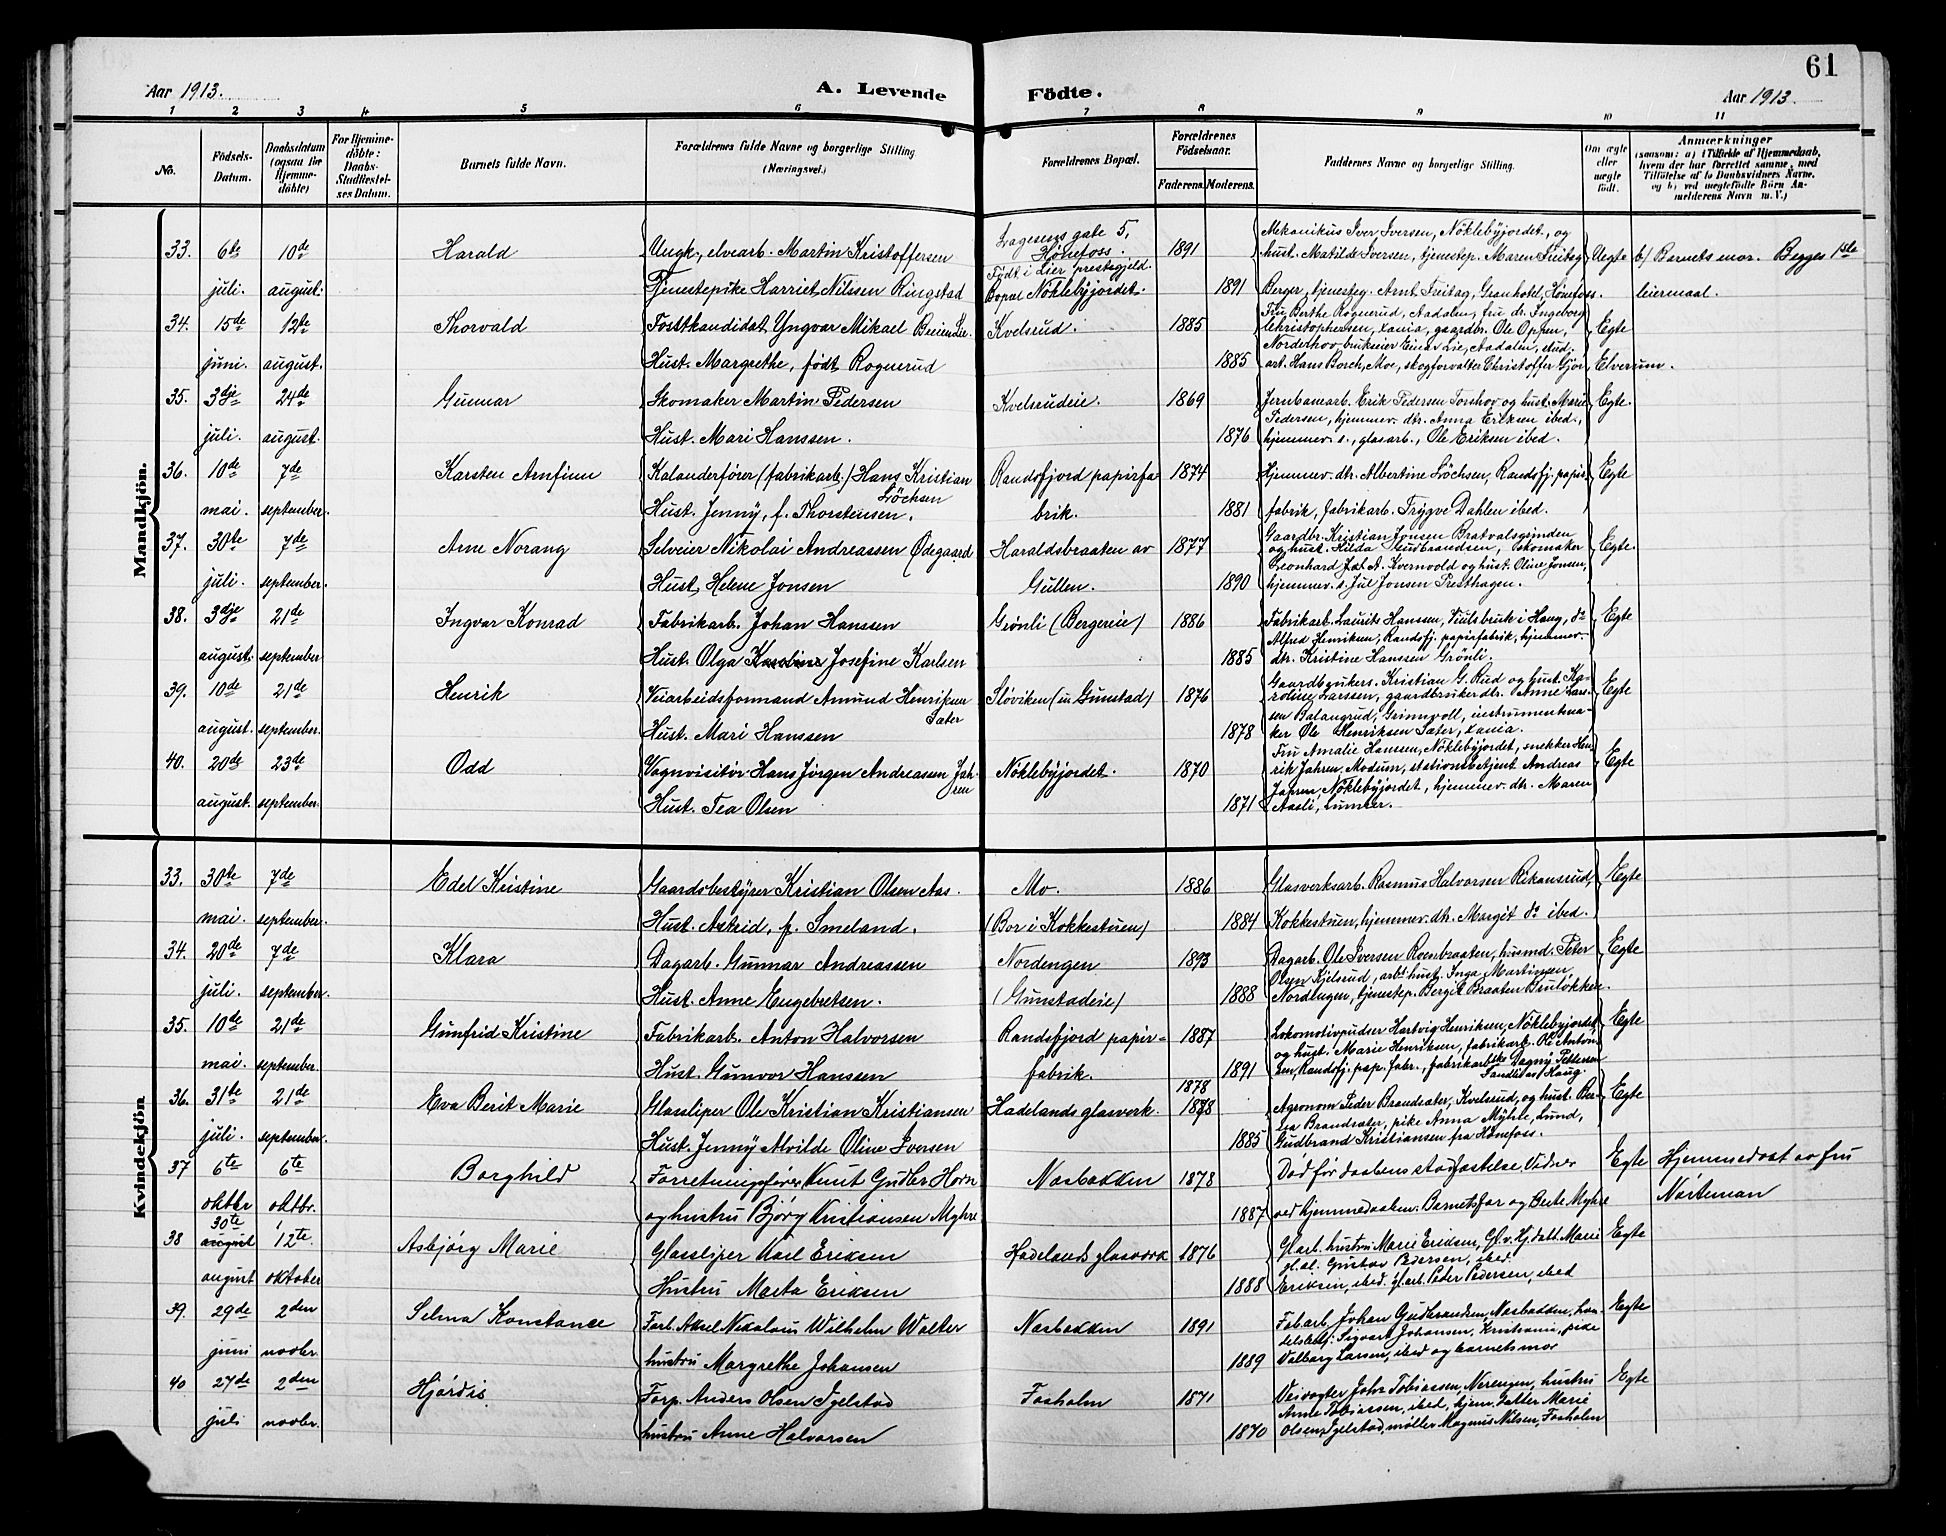 61
Aar 1913.
A. Levende Födte.
Aar 1913.
1 2 3 4 5 6 7 8 9 10 11
No.
Födsels-Datum.
Daabsdatum (ogsaa for Hjemme-döbte)
For Hjemme-döbte: Daabs-Stadfæstel-ses Datum.
Barnets fulde Navn.
Forældrenes fulde Navne og borgerlige Stilling (Næringsvei.)
Forældrenes Bopæl.
Forældrenes Födselsaar.
Faderens. Moderens.
Faddernes Navne og borgerlige Stilling.
Om ægte eller uægte födt.
Anmærkninger
(saasom: a) i Tilfælde af Hjemmedaab, hvem der har forrettet samme, med Tilföielse af to Daabsvidners Navne, og b) ved uægtefödte Börn An-melderens Navn m. V.)
Mandkjön.
33. 6te juli. 10de august. Harald
Ungk., elvearb. Martin Kristoffersen
Tjenestepike Harriet Nilssen Ringstad
gate 5, Hønefoss.
Født i Lier prestegjeld.
Bopæl Nöklebyjordet.
1891 1891
Mekanikus Iver Iversen, Nöklebyjordet, og
hust. Matilde Iversen, tjenestep. Maren Freitag
Berger, tjenesteg. Arnt Freitag, Granhotel, Hønefoss.
Uegte b/ Barnets mor. Begges 1ste leiermaal.
34. 15de juni. 12te august. Thorvald
Postkandidat Yngvar Mikael Breien Lie.
Hust. Margrethe, født Rognerud
Kvelsrud.
1885 1885
Fru Berthe Rognerud, Aadalen, fru dr. Ingeborg
Christophersen, Xania, gaardbr. Ole Oppen,
Norderhov, brukseier Einar Lie, Aadalen, stud.
art. Hans Borch, Moe, skogforvalter Christoffer Gjör, Elverum.
Egte
35. 3dje juli. 24de august. Gunnar
Skomaker Martin Pedersen
Hust. Mari Hanssen.
Kvelsrudeie.
1869 1876
Jernbanearb. Erik Pedersen Fosshov og hust. Marie
Pedersen, hjemmev. dtr. Anna Eriksen ibed.,
hjemmev. s., glasarb., Ole Eriksen ibed.
Egte.
36. 10de mai. 7de september. Karsten Arnfinn
Kalanderfører (fabrikarb.) Hans Kristian Löchsen
Hust. Jenny, f. Thorstensen.
Randsfjord papirfabrik.
1874 1881
Hjemmev. dtr. Albertine Löchsen, Randsfj. papir-
fabrik, fabrikarb. Trygve Dahlen ibed.
Egte
37. 30te juli. 7de september. Arne Norang
Selveier Nikolai Andreassen Ødegaard
Hust. Helene Jonsen
Haraldsbraaten av Gullen.
1877 1890
Gaardbr. Kristian Jonsen Bratvalsgrinden
og hust. Hilda Gudbrandsen, skomaker
Leonhard Jul A. Kvernvold og hust. Oline Jonsen,
hjemmev. s. Jul Jonsen Presthagen.
Egte.
38. 3dje august. 21de september Ingvar Konrad
Fabrikarb. Johan Hanssen
Hust. Olga Karoline Josefine Karlsen
Grönli (Bergereie)
1886 1885
Fabrikarb. Laurits Hanssen, Viulsbruk i Haug, do
Alfred Henriksen, Randsfj. papirfabrik, hjemmev.
dtr. Kristine Hanssen Grönli.
Egte
39. 10de august. 21de september. Henrik
Veiarbeidsformand Amund Henriksen Sæter
Hust. Mari Hanssen
Slöviken (u. Gunstad)
1876 1878
Gaardbrukers. Kristian G. Rud og hust. Ka-
roline Larssen, gaardbrukerdtr. Anne Lars-
sen Balangrud, Grinnvoll, instrumentma-
ker Ole Henriksen Sæter, Xania.
Egte
40. 20de august. 23de september. Odd
Vognvisitör Hans Jörgen Andreassen Jahren
Hust. Tea Olsen
Nöklebyjordet.
1870 1871
Fru Amalie Hansen, Nöklebyjordet, snekker Hen-
rik Jahren, Modum, stationsbetjent Andreas
Jahren, Nöklebyjordet, hjemmev. dtr. Maren
Aasli, Lunner.
Egte
Kvindekjön
33. 30te mai. 7de september. Edel Kristine
Gaardsbestyrer Kristian Olsen Aas.
Hust. Astrid, f. Smeland.
Mo.
(Bor i Kokkestuen)
1886 1884
Glasverksarb. Rasmus Halvorsen Rikansrud,
Kokkestuen, hjemmev. dtr. Margit do ibed.
Egte
34. 20de juli. 7de september. Klara
Dagarb. Gunnar Andreassen
Hust. Anne Engebretsen.
Nordengen
(Gunstadeie)
1893 1888
Dagarb. Ole Iversen Roenbraaten, husmd. Peter
Olsen Kjilsrud, arb. hust. Inga Martinsen,
Nordengen, tjenestep. Bergit Braaten Bruløkken.
Egte
35. 10de mai. 21de september. Gunfrid Kristine
Fabrikarb. Anton Halvorsen
Hust. Gunvor Hanssen
Randsfjord papir-fabrik.
1887 1891
Lokomotivpudser Hartvig Henriksen, Nöklebyjordet,
og hust. Marie Henriksen, fabrikarb. Ole Anton-
sen, Randsfj. pap. fabr., fabrikarbske Dagny Pettersen
Haug.
Egte
36. 31te juli. 21de september. Eva Berit Marie
Glassliper Ole Kristian Kristiansen
Hust. Jenny Alvilde Oline Iversen
Hadelands glasverk.
1878
1878 1885
Agronom Peder Brandsæter, Kvelsrud, og hust. Ber-
tea Brandsæter, pike Anna Myhre, Lund,
Gudbrand Kristiansen fra Hønefoss.
Egte
37 6te oktbr 6te oktbr. Borghild
Forretningsfører Knut Gudler Horn
og hustru Bjørg Kristiansen Myhre
Næsbakken
1878 1887
Død før daabens stadfæstelse. Vidner
ved hjemmedaaben: Barnets far og Berte Myhre
Egte Hjemmedøpt av fru Norteman
38 30te august august 12te. oktober Asbjörg Marie
Glassliper Karl Eriksen
Hustru Marta Eriksen
Hadelands glasværk
1876 1888
Gl.arb. hustru Marie Eriksen, Gl.v. Hj. datt. Marie
gl.sl. Gustav Pedersen, ibed.
Eriksen, ibed. gl.arb. Peder Pedersen, ibed
Egte
39. 29de juni 2den novbr. Selma Konstance
Farb. Aksel Nikolaus Wilhelm Walter
hustru Margrethe Johansen
Næsbakken
1891 1889
Fabarb. Johan Gudbrandsen, Næsbakken, han-
delsbetj. Sigvart Johansen, Kristiania, pike
Valborg Larsen, ibed og barnets mor
Egte
40 27de juli 2den novbr. Hjördis.
Forp. Anders Olsen Igelstad
hustru Anne Halvorsen
Fosholm
1871 1870
Veivogter Johs Tobiassen, Nerengen, hustru
Anne Tobiassen, ibed, hjem. datter Marie
Olsen Igelstad, møller Magnus Nilsen, Fosholm
Egte